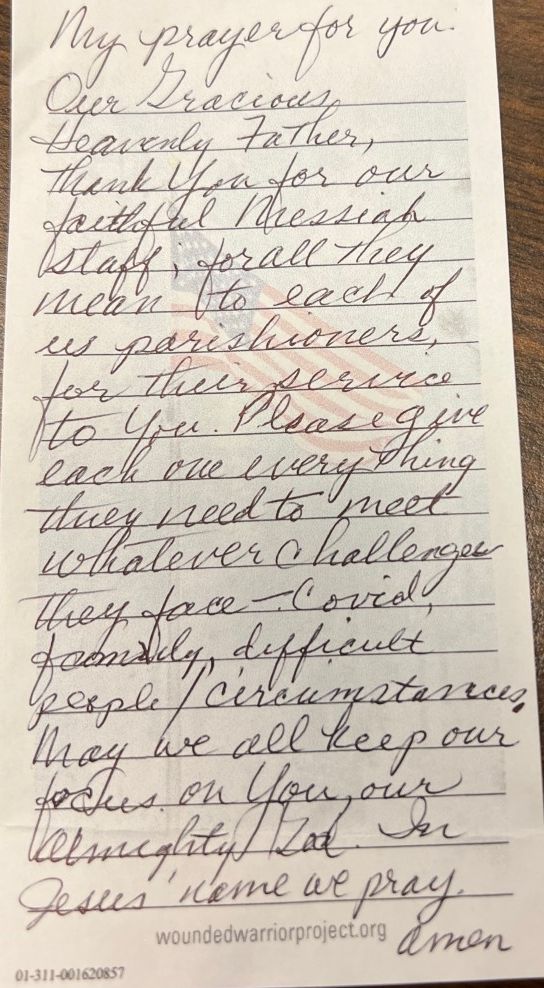 My prayer for you.
Our Gracious
Heavenly Father,
thank You for our
faithful Messiah
staff, for all they
mean to each of
us parishioners,
for their service
to You. Please give
each one everything
they need to meet
whatever challenges
they face - Covid,
family, difficult
people / circumstances.
May we all keep our
focus on You, our
Almighty God. In
Jesus' name we pray.
amen
woundedwarriorproject.org
01-311-001620857